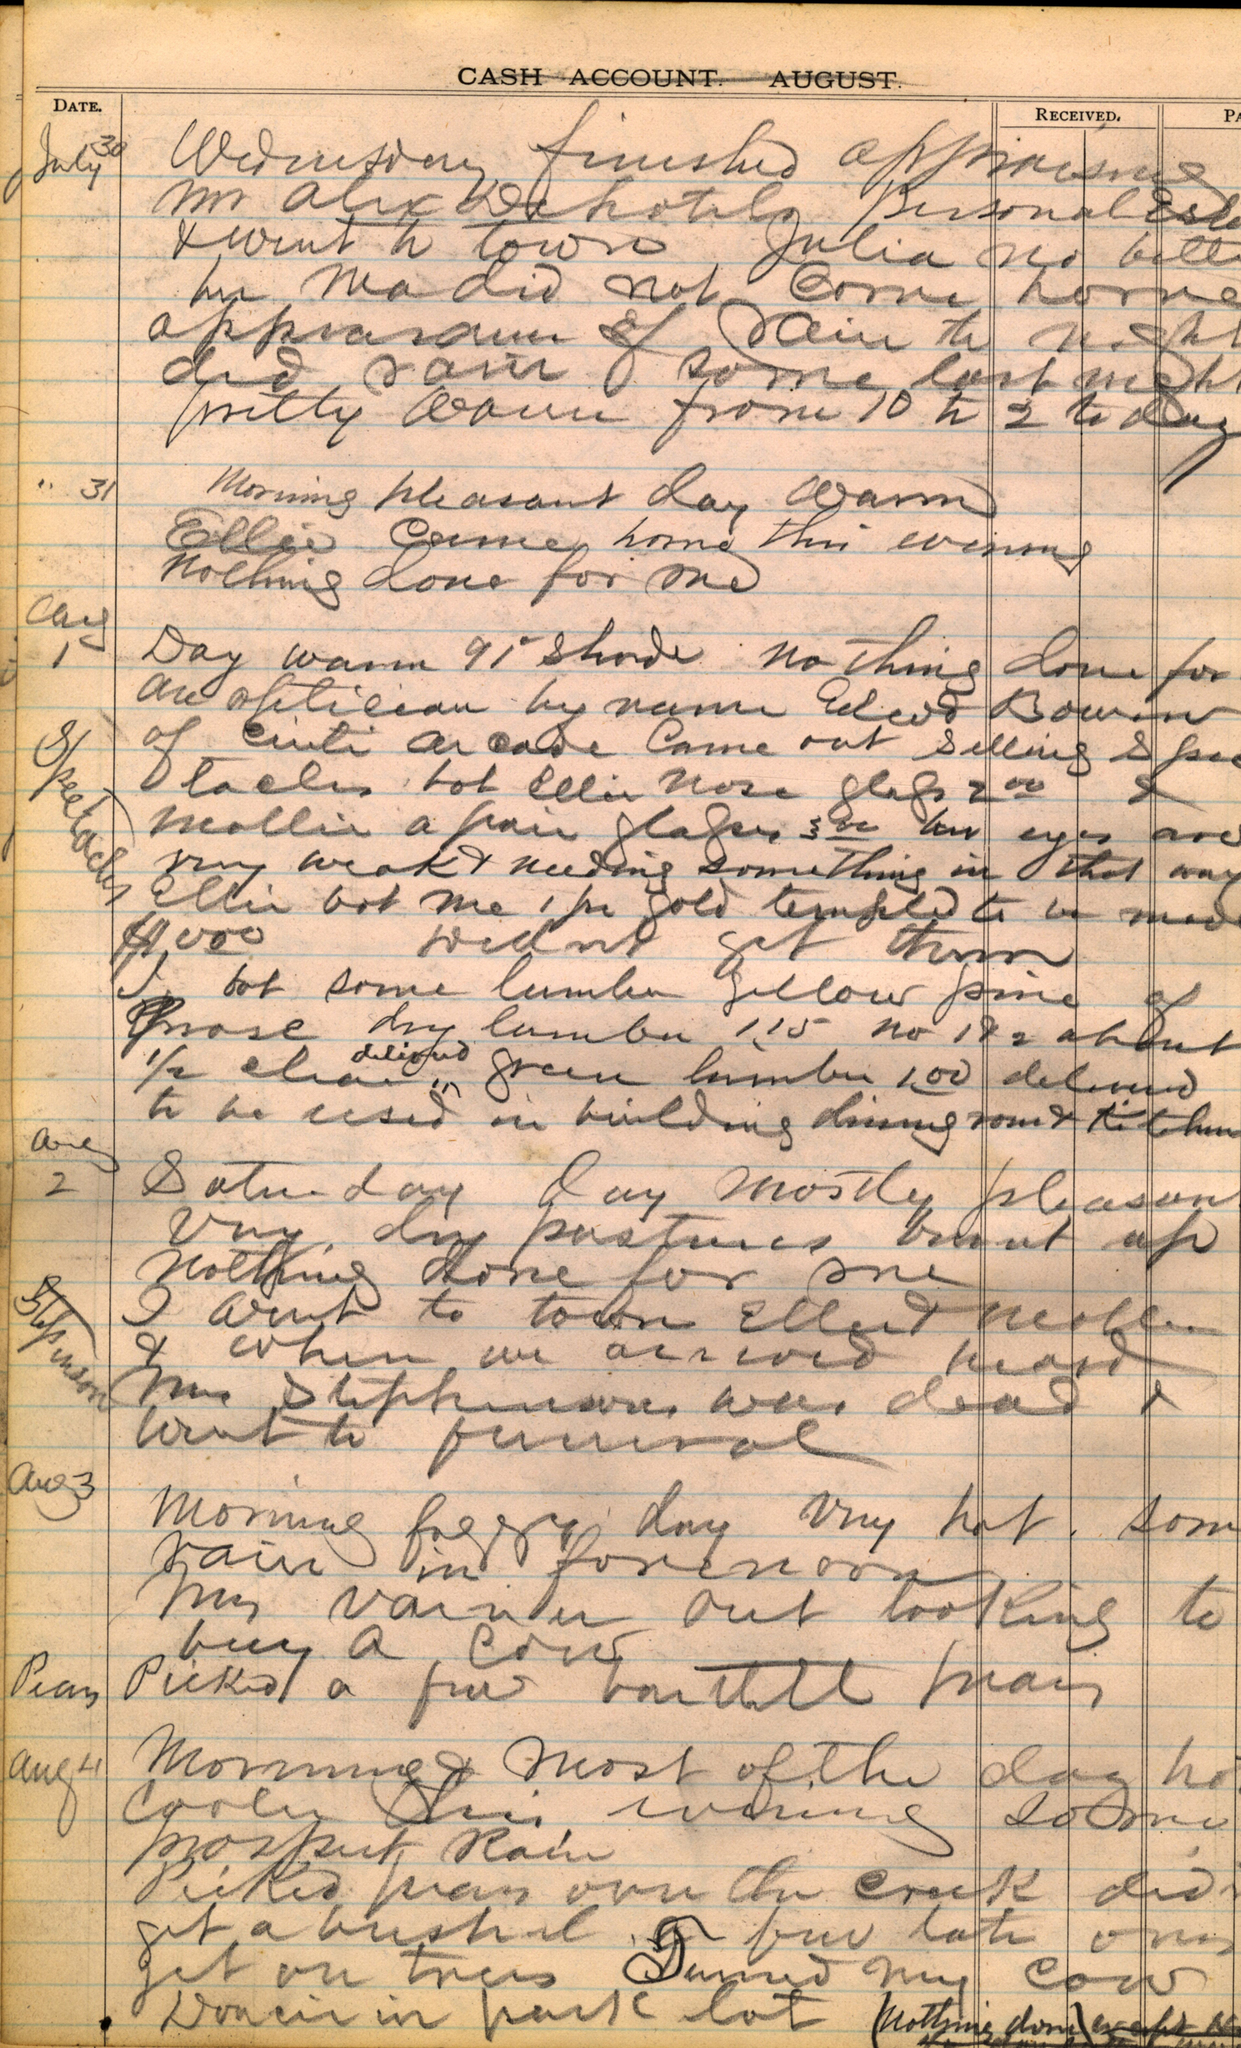 CASH ACCOUNT. AUGUST.
DATE.
RECEIVED.
PA
July 30 Wednesday finished appraising
Mr Alex Personal Esta
& went to town Julia no bette
her Ma did not come home
appearance of rain to night
did rain some last night
pretty warm from 10 to 2 to day
" 31 Morning pleasant day warm
Ellie came home this evening
Nothing done for me
Aug 1 Day warm 91° shade nothing done for
an optician by name Edwd Bowin
of Cinti arcade came out selling spec
Spectacles
tacles bot Ellie nose glass 2 00 &
Mollie a pair glasses 3 00 her eyes are
very weak & needing something in that way
Ellie bot me 1 pr gold temples to be made
4,000 didnt get them
I bot some lumber yellow pine of
dry lumber 1.15 no 1 & 2 about
1/2 clear delivered " green lumber 1.00 delivered
to be used in building dining room & Kitchen
Aug 2 Saturday day mostly pleasan
very dry pastures burnt up
nothing done for me
Stepinson
I went to town Ellie & Mollie
& when we arrived heard
Mrs Stephenson was dead &
went to funeral
Aug 3 Morning foggy day very hot. som
rain in forenoon
Mr out looking to
buy a cow
Pears Picked a few bartlett pears
Aug 4 Morning & most of the day ho
cooler this evening some
prospect Rain
Picked pears over the creek did
get a bushel a few late ones
yet on trees Turned my cow
in park lot (Nothing done) except